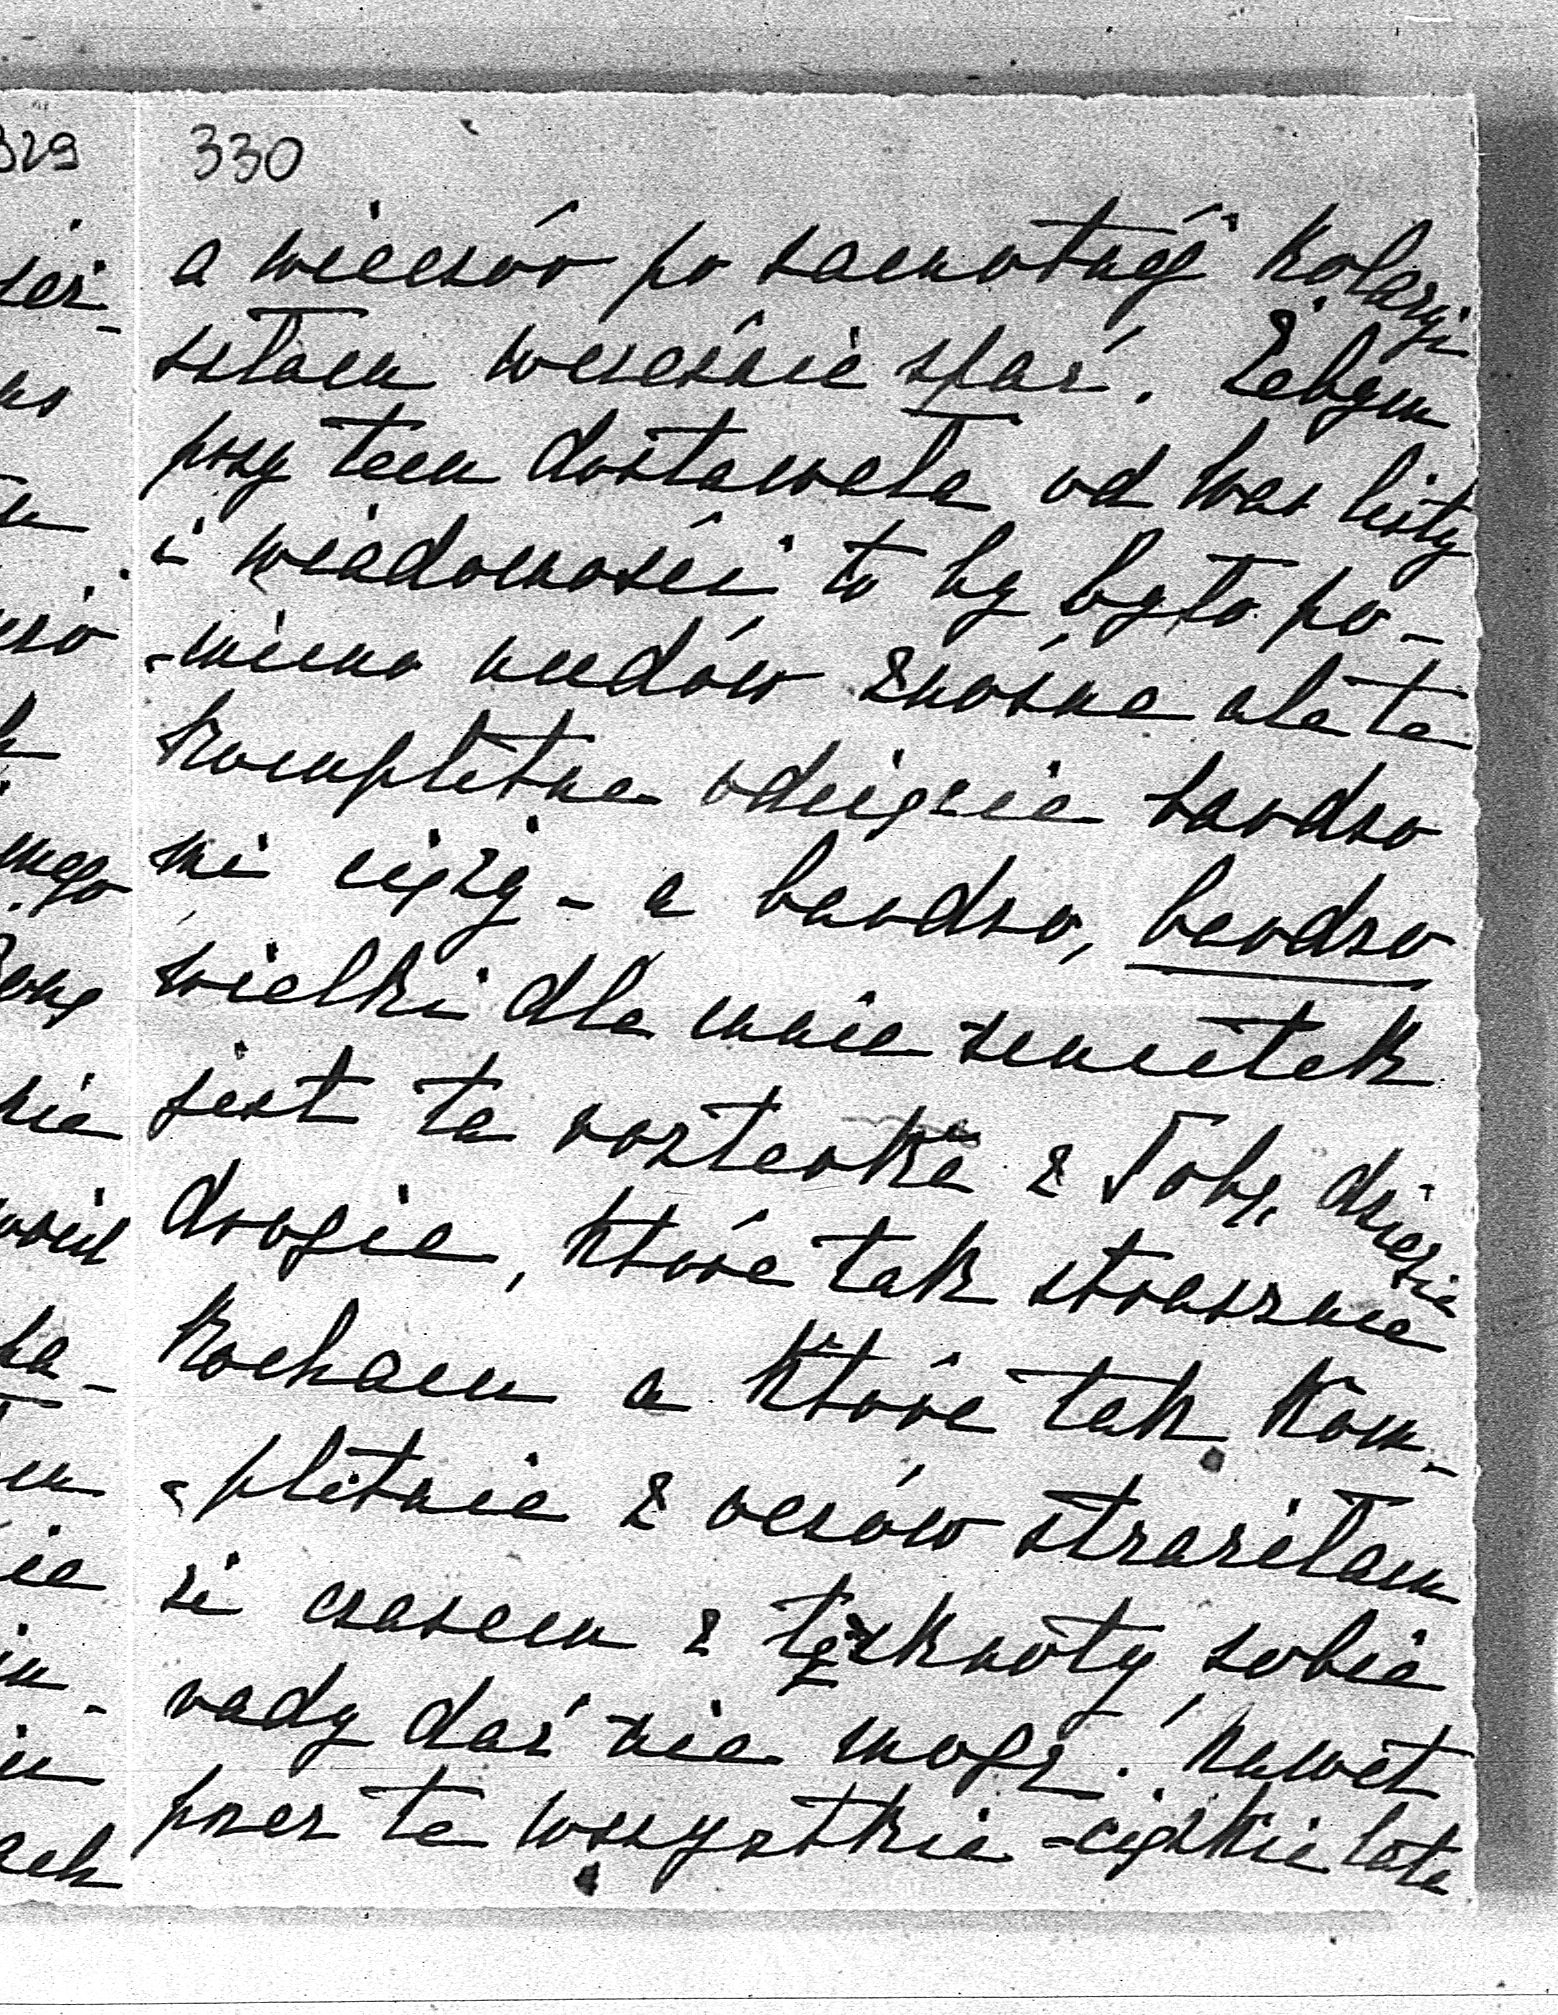 329
330
a wieczór po samotnéj kolazji
szłam wcześnie spać. Żebym
przy tem dostawała od was listy
i wiadomości to by było po-
-mimo nudów znośne ale te
kompletne odcięcie bardzo
mi cięży - a bardzo, bardzo
wielki dla mnie smutek
jest ta rozterka z Tobą dziecię
drogie, które tak strasznie
kocham a które tak kom-
-pletnie z oczów straciłam
że czasem z tęsknoty sobie
rady dać nie mogę. Nawet
przez te wszystkie ciężkie lata